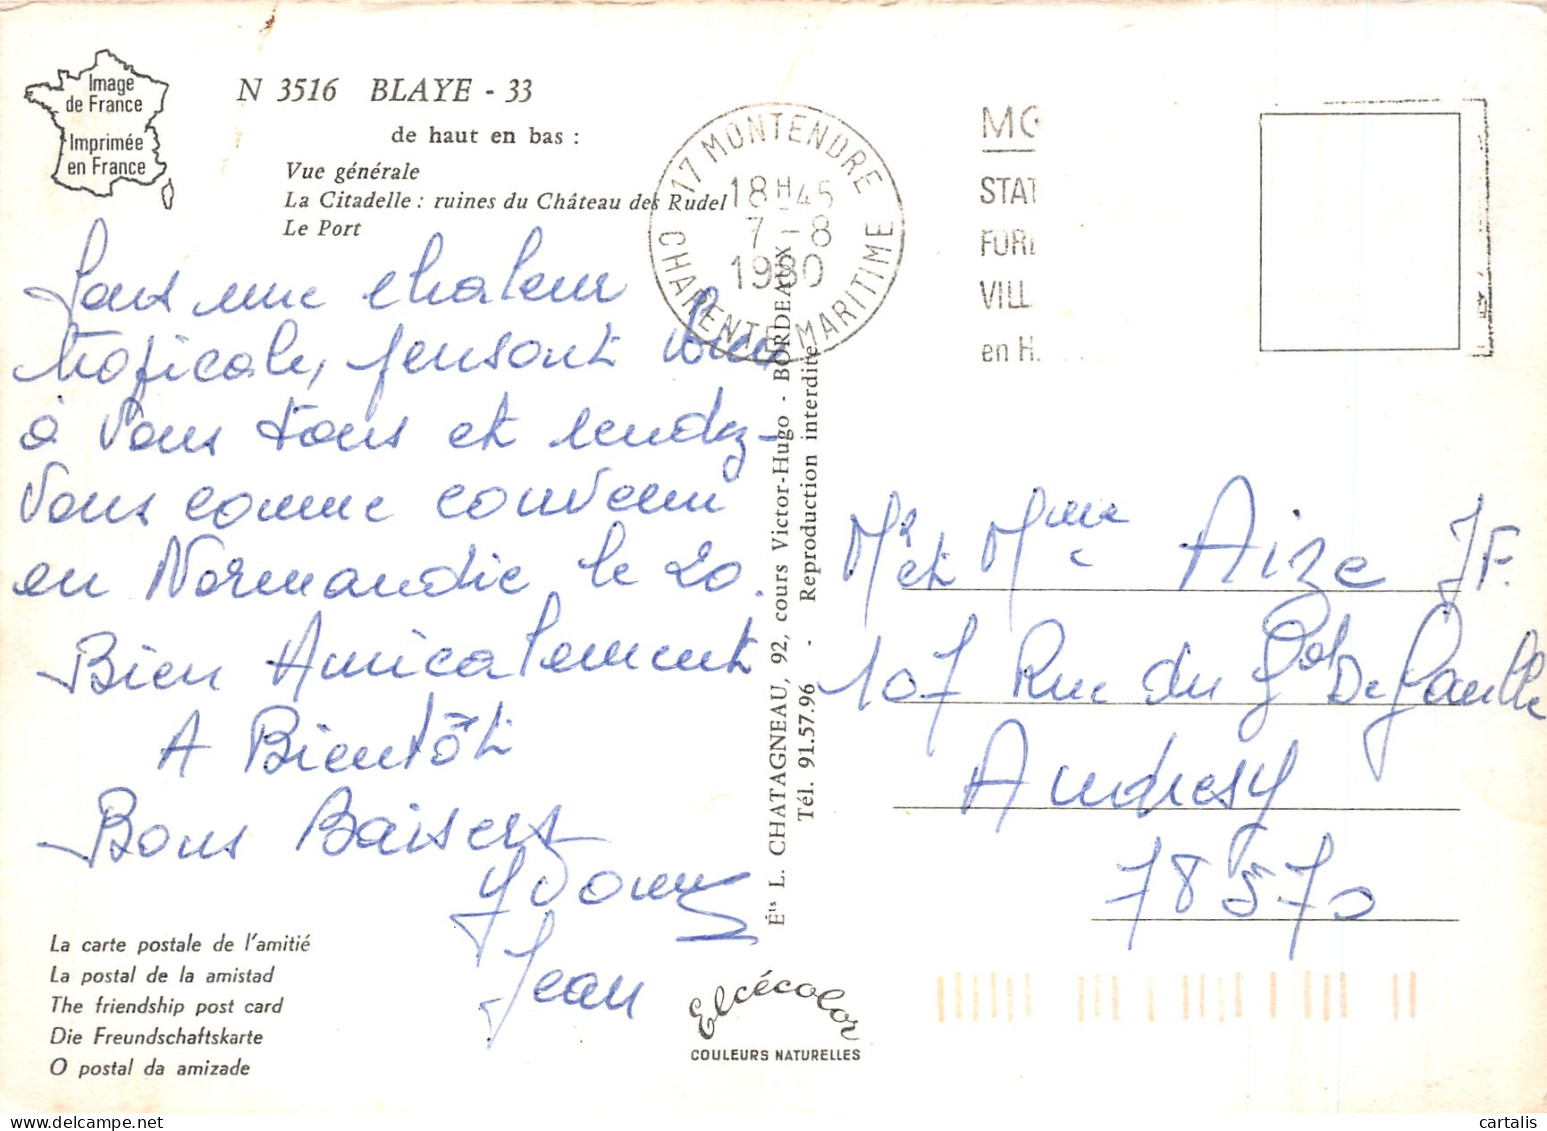 Image
de France
Imprimée
en France
N 3516 BLAYE - 33
de haut en bas :
Vue générale
La Citadelle : ruines du Château des Rudel
Le Port
17 MONTENDRE
18H45
7-8
1980
CHARENTE MARITIME
MO
STAT
FOR
VILL
en H.
Sous une chaleur
tropicale, pensant bien
à vous tous et rendez-
vous comme convenu
en Normandie le 20.
Bien Amicalement
A Bientôt
Bons Baisers
Yvonne
Jean
Éts L. CHATAGNEAU, 92, cours Victor-Hugo - BORDEAUX
Tél. 91.57.96 - Reproduction interdite
Mr et Mme Aize JF.
107 Rue du Gal De Gaulle
Andresy
78570
La carte postale de l'amitié
La postal de la amistad
The friendship post card
Die Freundschaftskarte
O postal da amizade
Elcécolor
COULEURS NATURELLES
cartalis